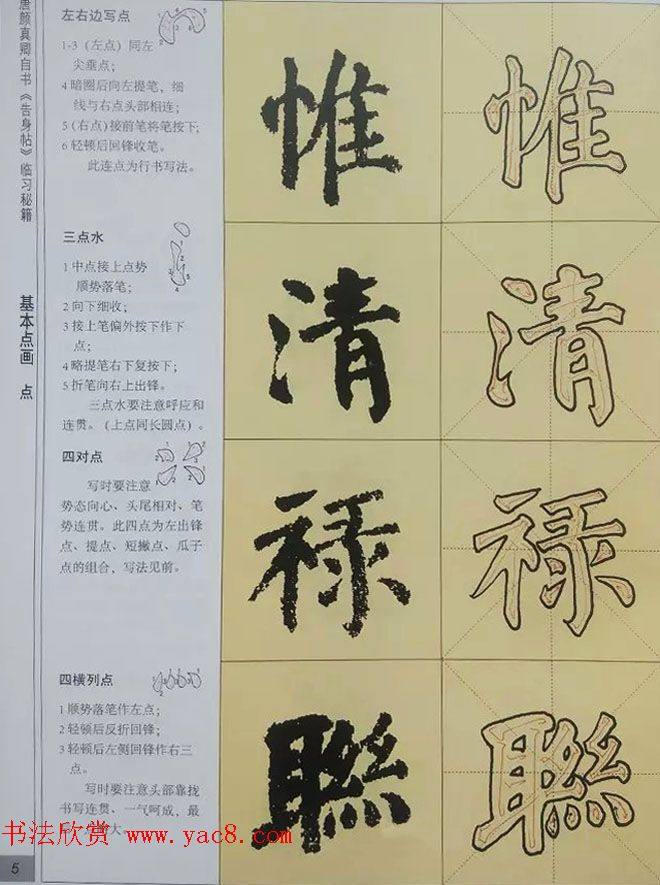 唐颜真卿自书《告身帖》临习秘籍
基本点画 点
5
左右边写点
1-3（左点）同左
尖垂点；
4 暗圈后向左提笔，细
线与右点头部相连；
5（右点）接前笔将笔按下；
6 轻顿后回锋收笔。
此连点为行书写法。
惟
惟
三点水
1 中点接上点势
顺势落笔；
2 向下细收；
3 接上笔偏外按下作下
点；
4 略提笔右下复按下；
5 折笔向右上出锋。
三点水要注意呼应和
连贯。（上点同长圆点）。
清
清
四对点
写时要注意
势态向心、头尾相对、笔
势连贯。此四点为左出锋
点、提点、短撇点、瓜子
点的组合，写法见前。
禄
禄
四横列点
1 顺势落笔作左点；
2 轻顿后反折回锋；
3 轻顿后左侧回锋作右三
点。
写时要注意头部靠拢
书写连贯、一气呵成，最
大。
聯
聯
书法欣赏 www.yac8.com